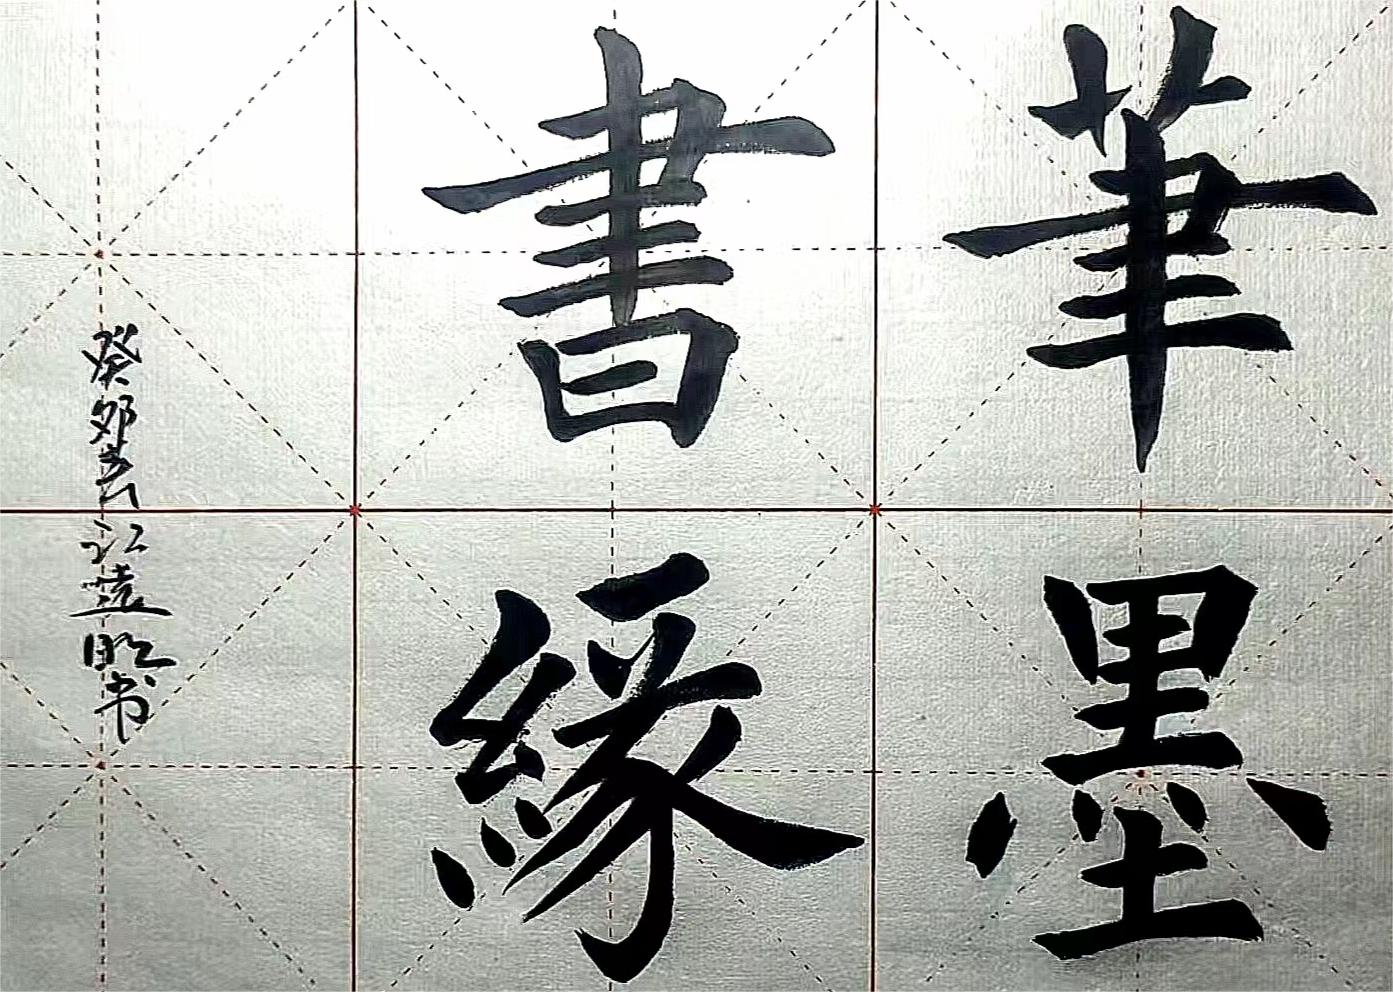 筆墨
書緣
癸卯去江蓮明书